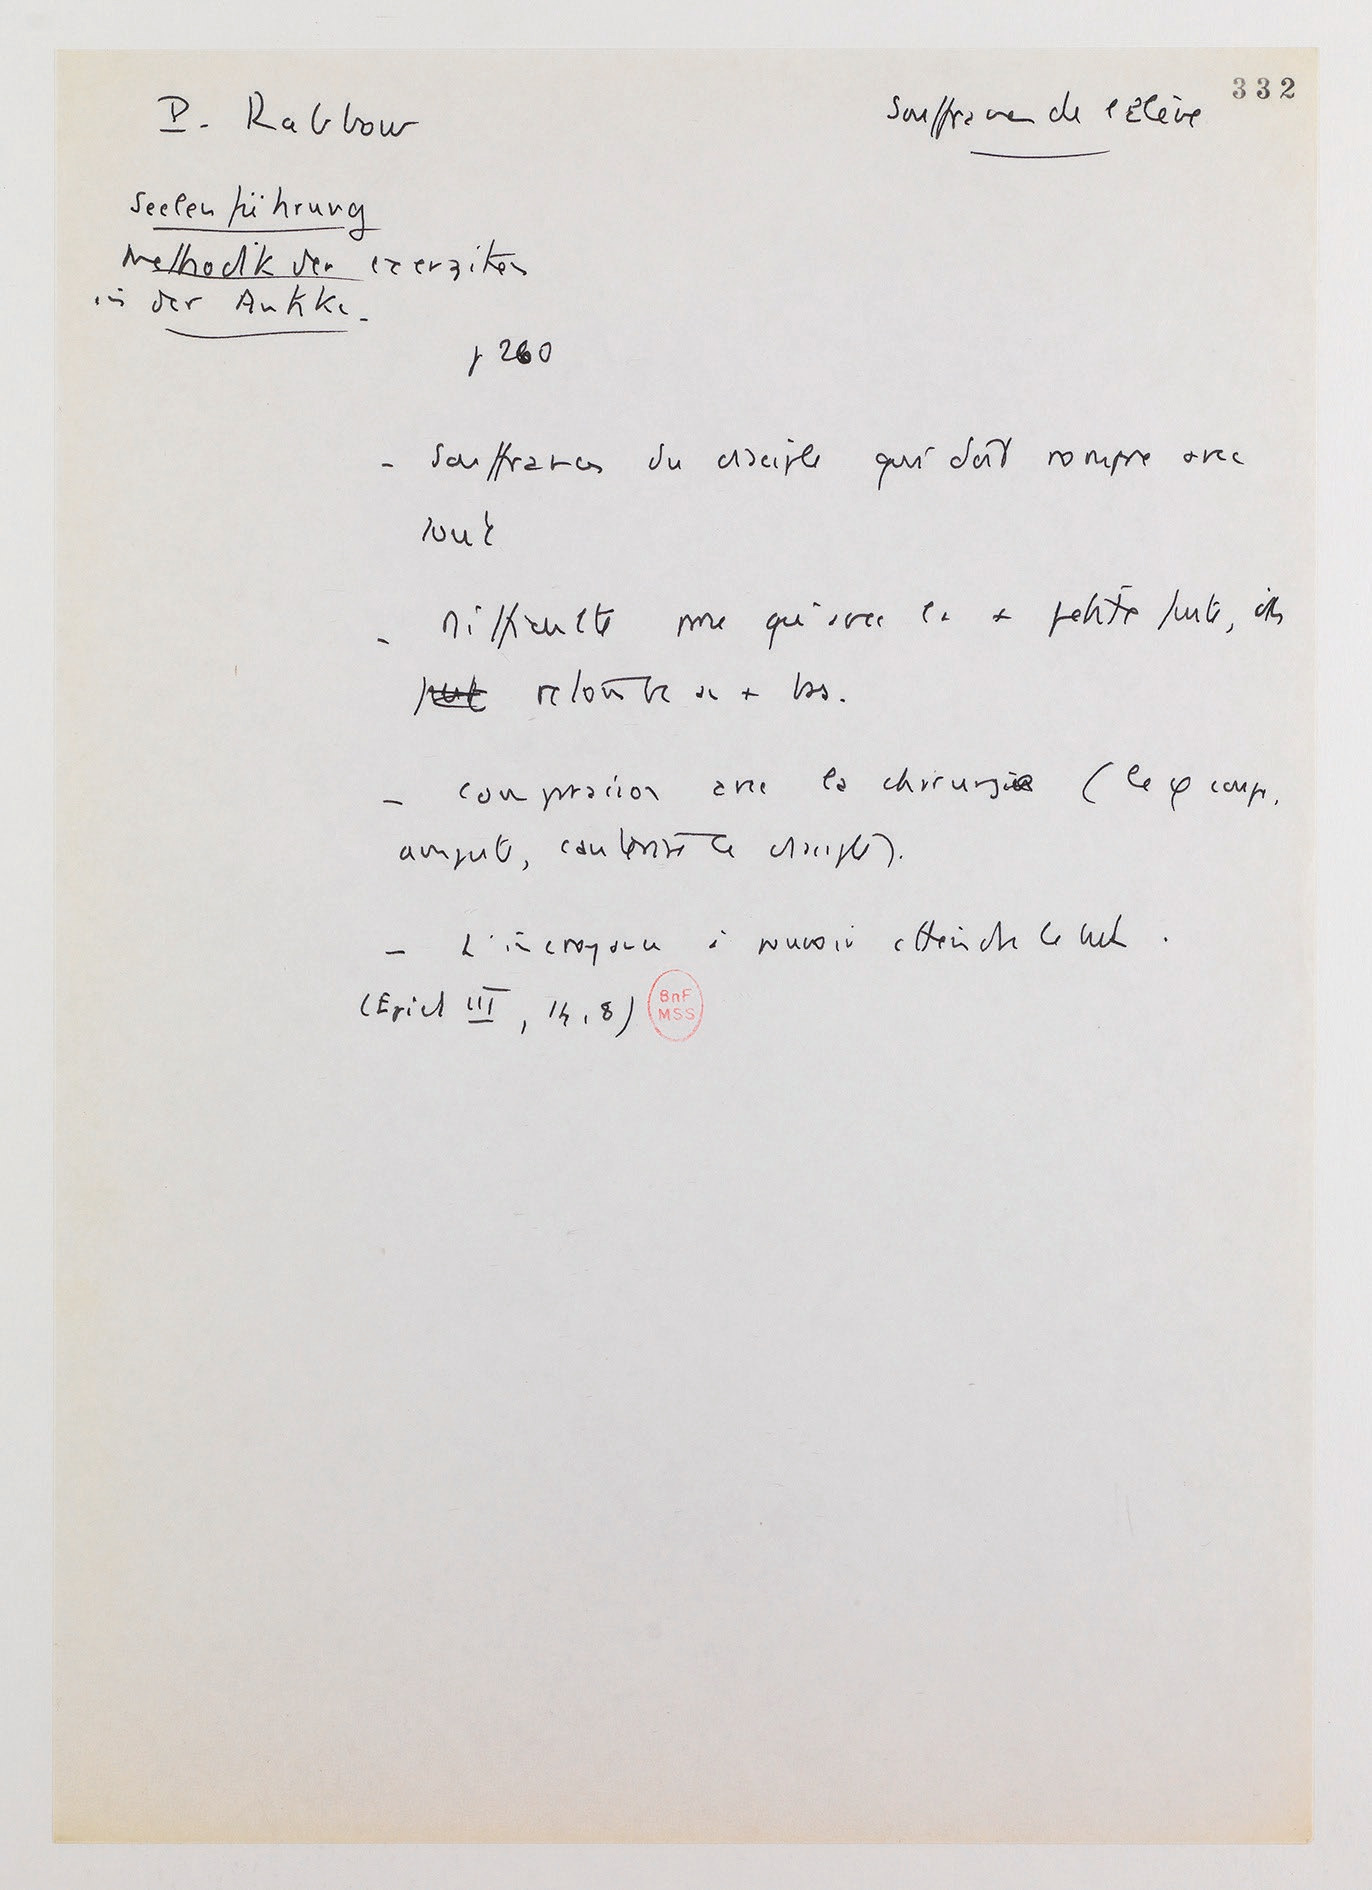 332
P. Rabbow
Souffrance de l'élève
Seelenführung
Methodik der exerzitien
in der Antike.
p 260
- Souffrances du disciple qui doit rompre avec
tout
- Difficulté pcq qu'avec la + petite faute, ils
retombe au + bas.
- comparaison avec la chirurgie (le φ coupe,
ampute, cautérise le disciple).
- L'incroyance à pouvoir atteindre le but.
(Epict III, 14, 8)
BnF
MSS